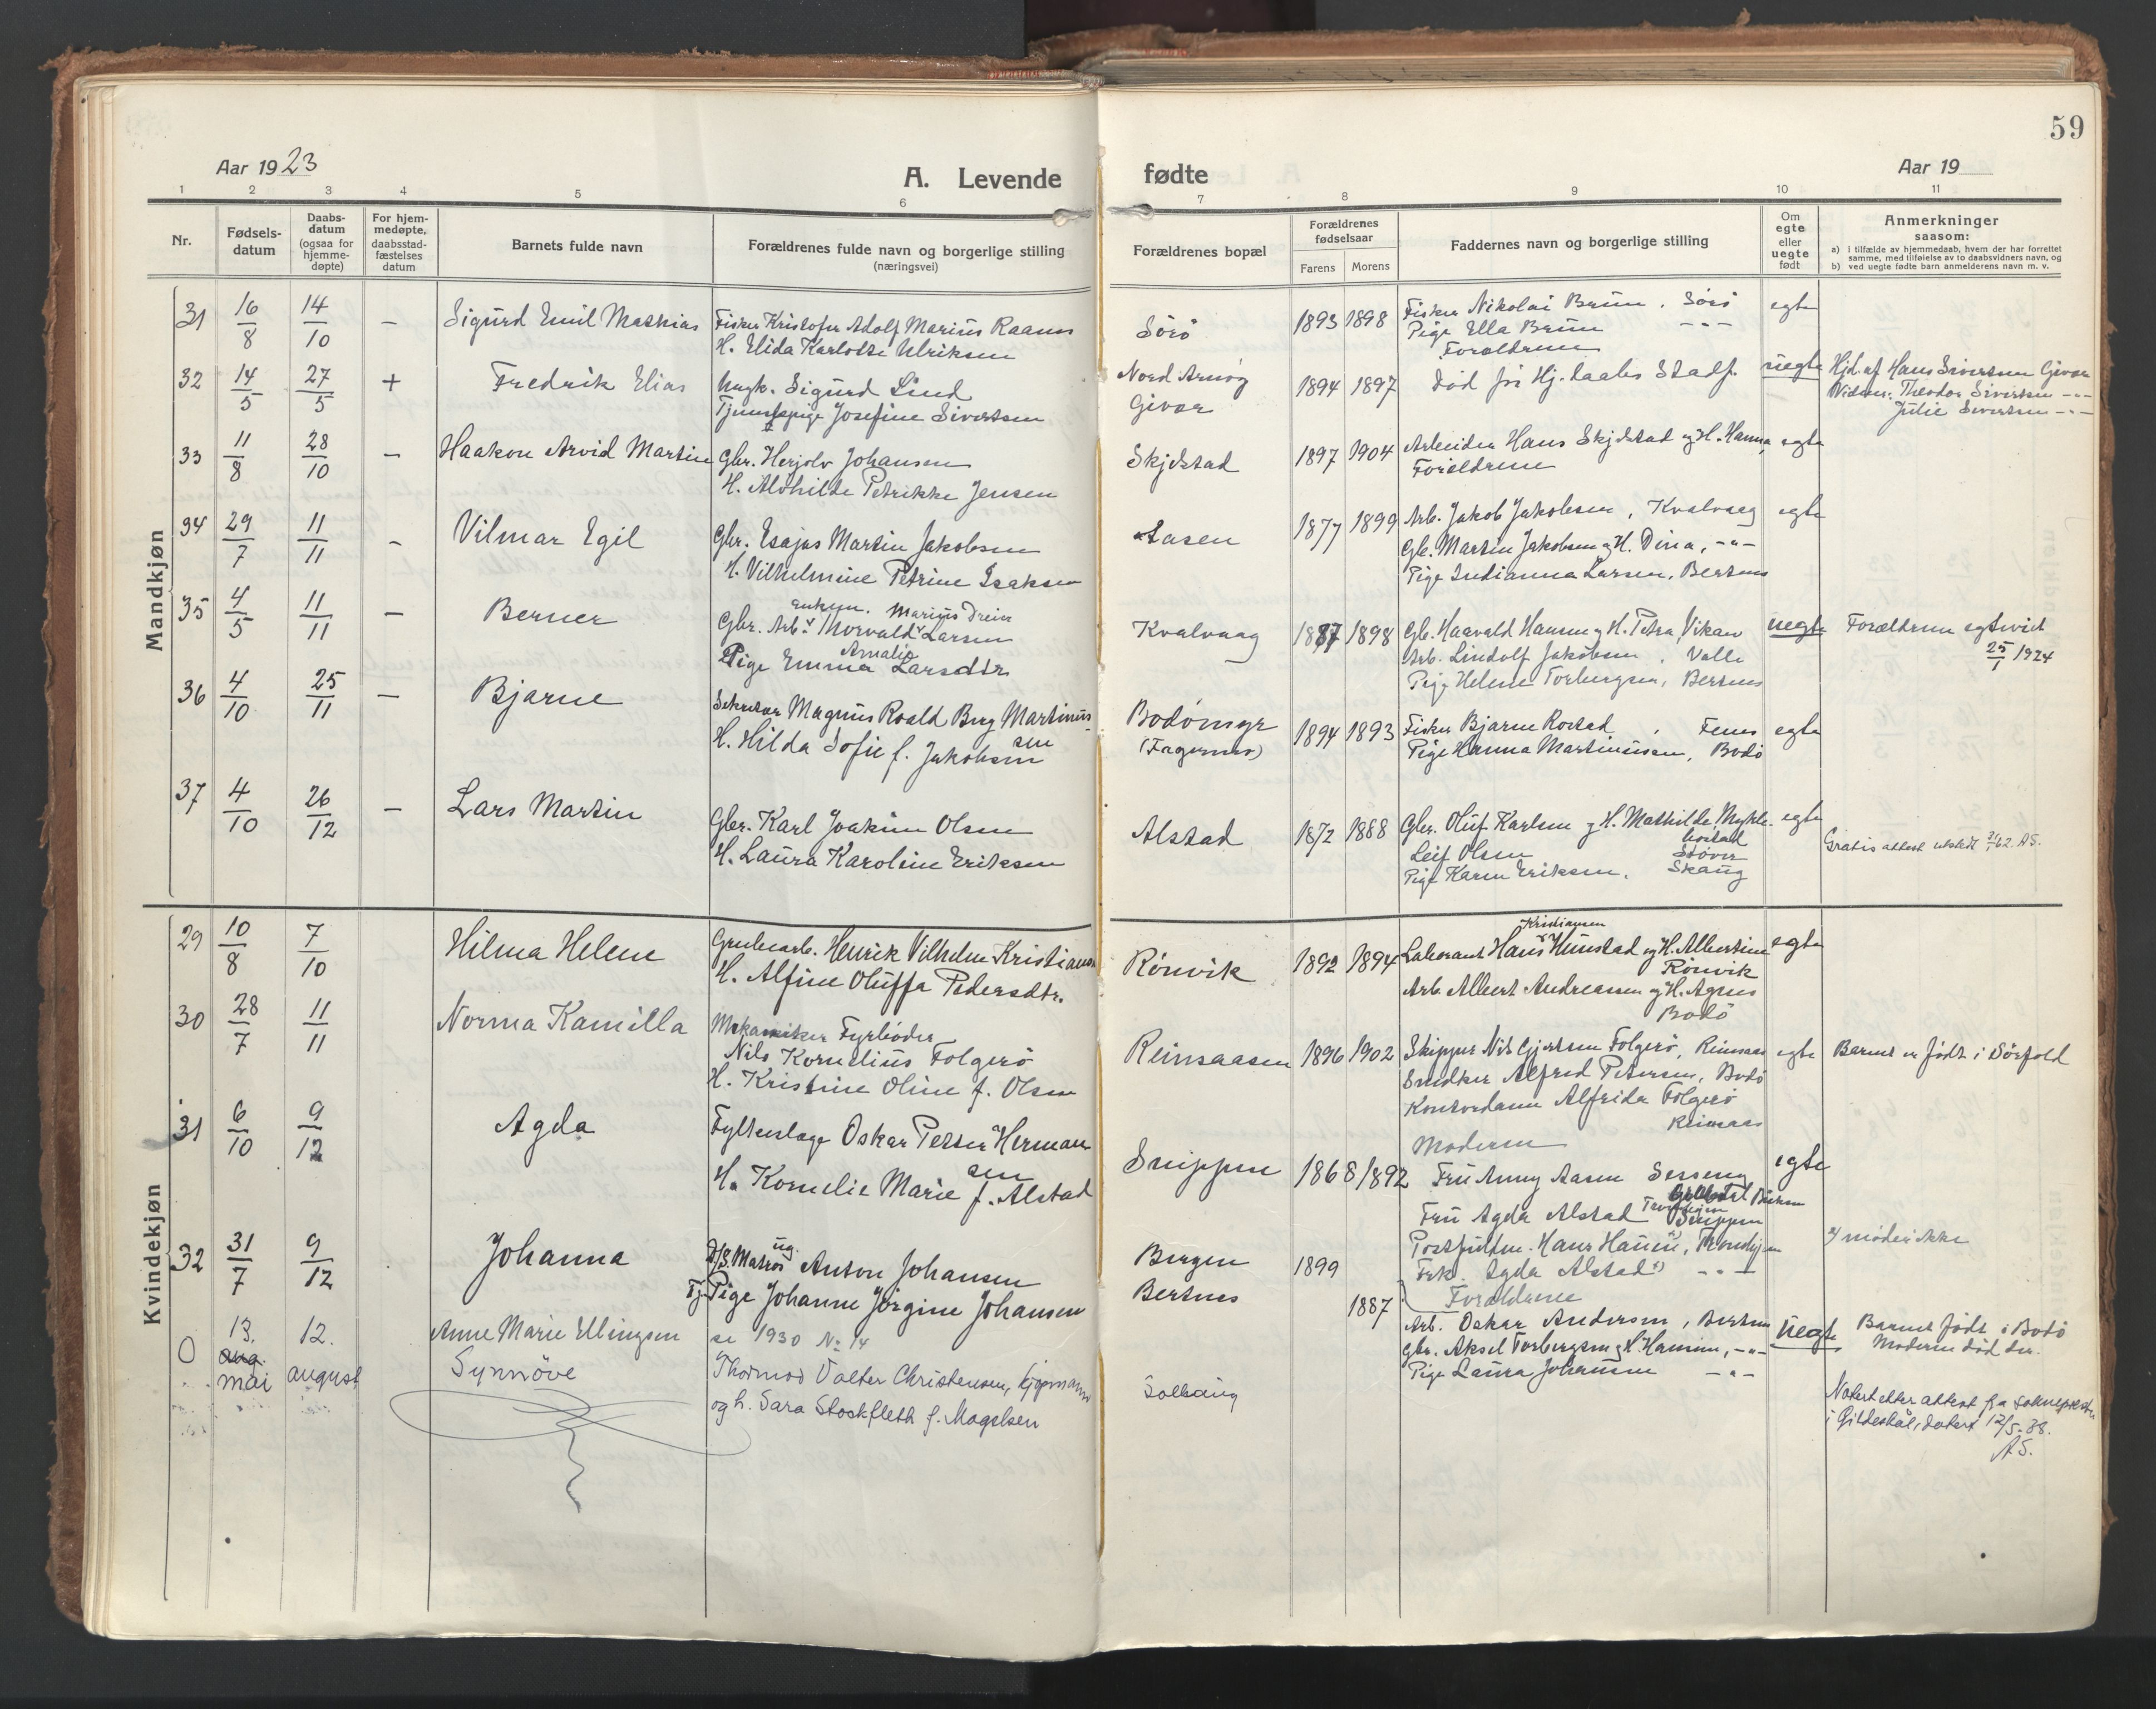 59
Aar 1923
A. Levende fødte
Aar 19
1 2 3 4 5 6 7 8 9 10 11
Nr.
Fødsels-
datum
Daabs-
datum
(ogsaa for
hjemme-
døpte)
For hjem-
medøpte,
daabsstad-
fæstelses
datum
Barnets fulde navn
Forældrenes fulde navn og borgerlige stilling
(næringsvei)
Forældrenes bopæl
Forældrenes
fødselsaar
Farens Morens
Faddernes navn og borgerlige stilling
Om
egte
eller
uegte
født
Anmerkninger
saasom:
a) i tilfælde av hjemmedaab, hvem der har forrettet
samme, med tilføielse av to daabsvidners navn, og
b) ved uegte fødte barn anmelderens navn m. v.
Mandkjøn
31 16/8 14/10 – Sigurd Emil Mathias
Fisker Kristofer Adolf Marius Raanes
H. Elida Karlotte Ulriksen
Sörö 1893 1898
Fisker Nikolai Bruun, Sörö
Pige Ella Bruun -"-
Forældrene
egte
32 14/5 27/5 + Fredrik Elias
Ungk. Sigurd Lind
Tjenestepige Josefine Sivertsen
Nord Arnöy
Givær
1894 1897
Död för Hj. daabs Stadf.
uegte
Hjd. af Hans Sivertsen Givær
Vidner: Theodor Sivertsen -"-
Julie Sivertsen -"-
33 11/8 28/10 – Haakon Arvid Martin
Gbr. Herjolv Johansen
H. Alvhilde Petrikke Jensen
Skjelstad 1897 1904
Arbeider Hans Skjelstad og H. Hanna,
Forældrene
egte
34 29/7 11/11 – Vilmar Egil
Gbr. Esajas Martin Jakobsen
H. Vilhelmine Petrine Isaksen
Aasen 1877 1899
Arb. Jakob Jakobsen, Kvalvaag
Gb. Martin Jakobsen og H. Dina, -"-
Pige Indianna Larsen, Bertnes
egte
35 4/5 11/11 – Berner
enkem. Marius Drein
Gbr. Arb. Thorvald Larsen
Amalie
Pige Emma Larsdtr
Kvalvaag 1887 1898
Gb. Haavald Hansen og H. Petra, Vikan
Arb. Lindolf Jakobsen, Valle
Pige Helene Torbergsen, Bertnes
uegte
Forældrene egteviet
25/1 1924
36 4/10 25/11 – Bjarne
Sekretær Magnus Roald Berg Martinus-
sen
H. Hilda Sofie f. Jakobsen
Bodömyr
(Fagernes)
1894 1893
Fisker Bjarne Rostad, Fenes
Pige Hanna Martinussen, Bodö
egte
37 4/10 26/12 – Lars Martin
Gbr. Karl Joakim Olsen
H. Laura Karoline Eriksen
Alstad 1872 1888
Gbr. Oluf Karlsen og H. Mathilde Mykle-
bostad
Leif Olsen Stöver
Pige Karen Eriksen, Skaug
egte
Gratis attest utstedt 62. AS.
Kvindekjøn
29 10/8 7/10 Hilma Helene
Grubearb. Henrik Vilhelm Kristiansen
H. Alfine Oluffa Pedersdtr.
Rönvik 1892 1894
Kristiansen
Laborant Hans Hunstad og H. Albertine
Rönvik
Arb. Albert Andreassen og H. Agnes
Bodö
egte
30 28/7 11/11 Norma Kamilla
Mekaniker Fyrböder
Nils Kornelius Folgerö
H. Kristine Oline f. Olsen
Reinsaasen 1896 1902
Skipper Nils Gjertsen Folgerö, Reinsaas
Snedker Alfred Petersen, Bodö
Kontordame Alfrida Folgerö
Reinsaas
egte
Barnet er födt i Sörfold
31 6/10 9/12 Agda
Fylkeslæge Oskar Petter Herman-
sen
H. Kornelie Marie f. Alstad
Snippen 1868 1892
Moderen
Fru Anny Aasen
Fru Agda Alstad Snippen
Postfuldm. Hans Hauen, Trondhjem
Frk. Agda Alstad¹⁾ -"-
egte
¹⁾ möder ikke
32 31/7 9/12 Johanna
ug.
D/S. Matros Anton Johansen
Tj. Pige Johanne Jörgine Johansen
Bergen 1899
Bertnes 1887
Forældrene
Arb. Oskar Andersen, Bertnes
Gbr. Aksel Torbergsen og H. Hansine, -"-
Pige Laura Johansen -"-
Uegte
Barnet födt i Bodö
Moderen död der.
Anne Marie Ellingsen se 1930 No 14
0 13. aug. mai 12. august Synnöve
Thormod Valter Christensen, kjöpmann
og h. Sara Stockfleth f. Magelsen
Solhaug
Notert etter attest fra soknepresten
i Gildeskål, datert 12/5-38.
AS.